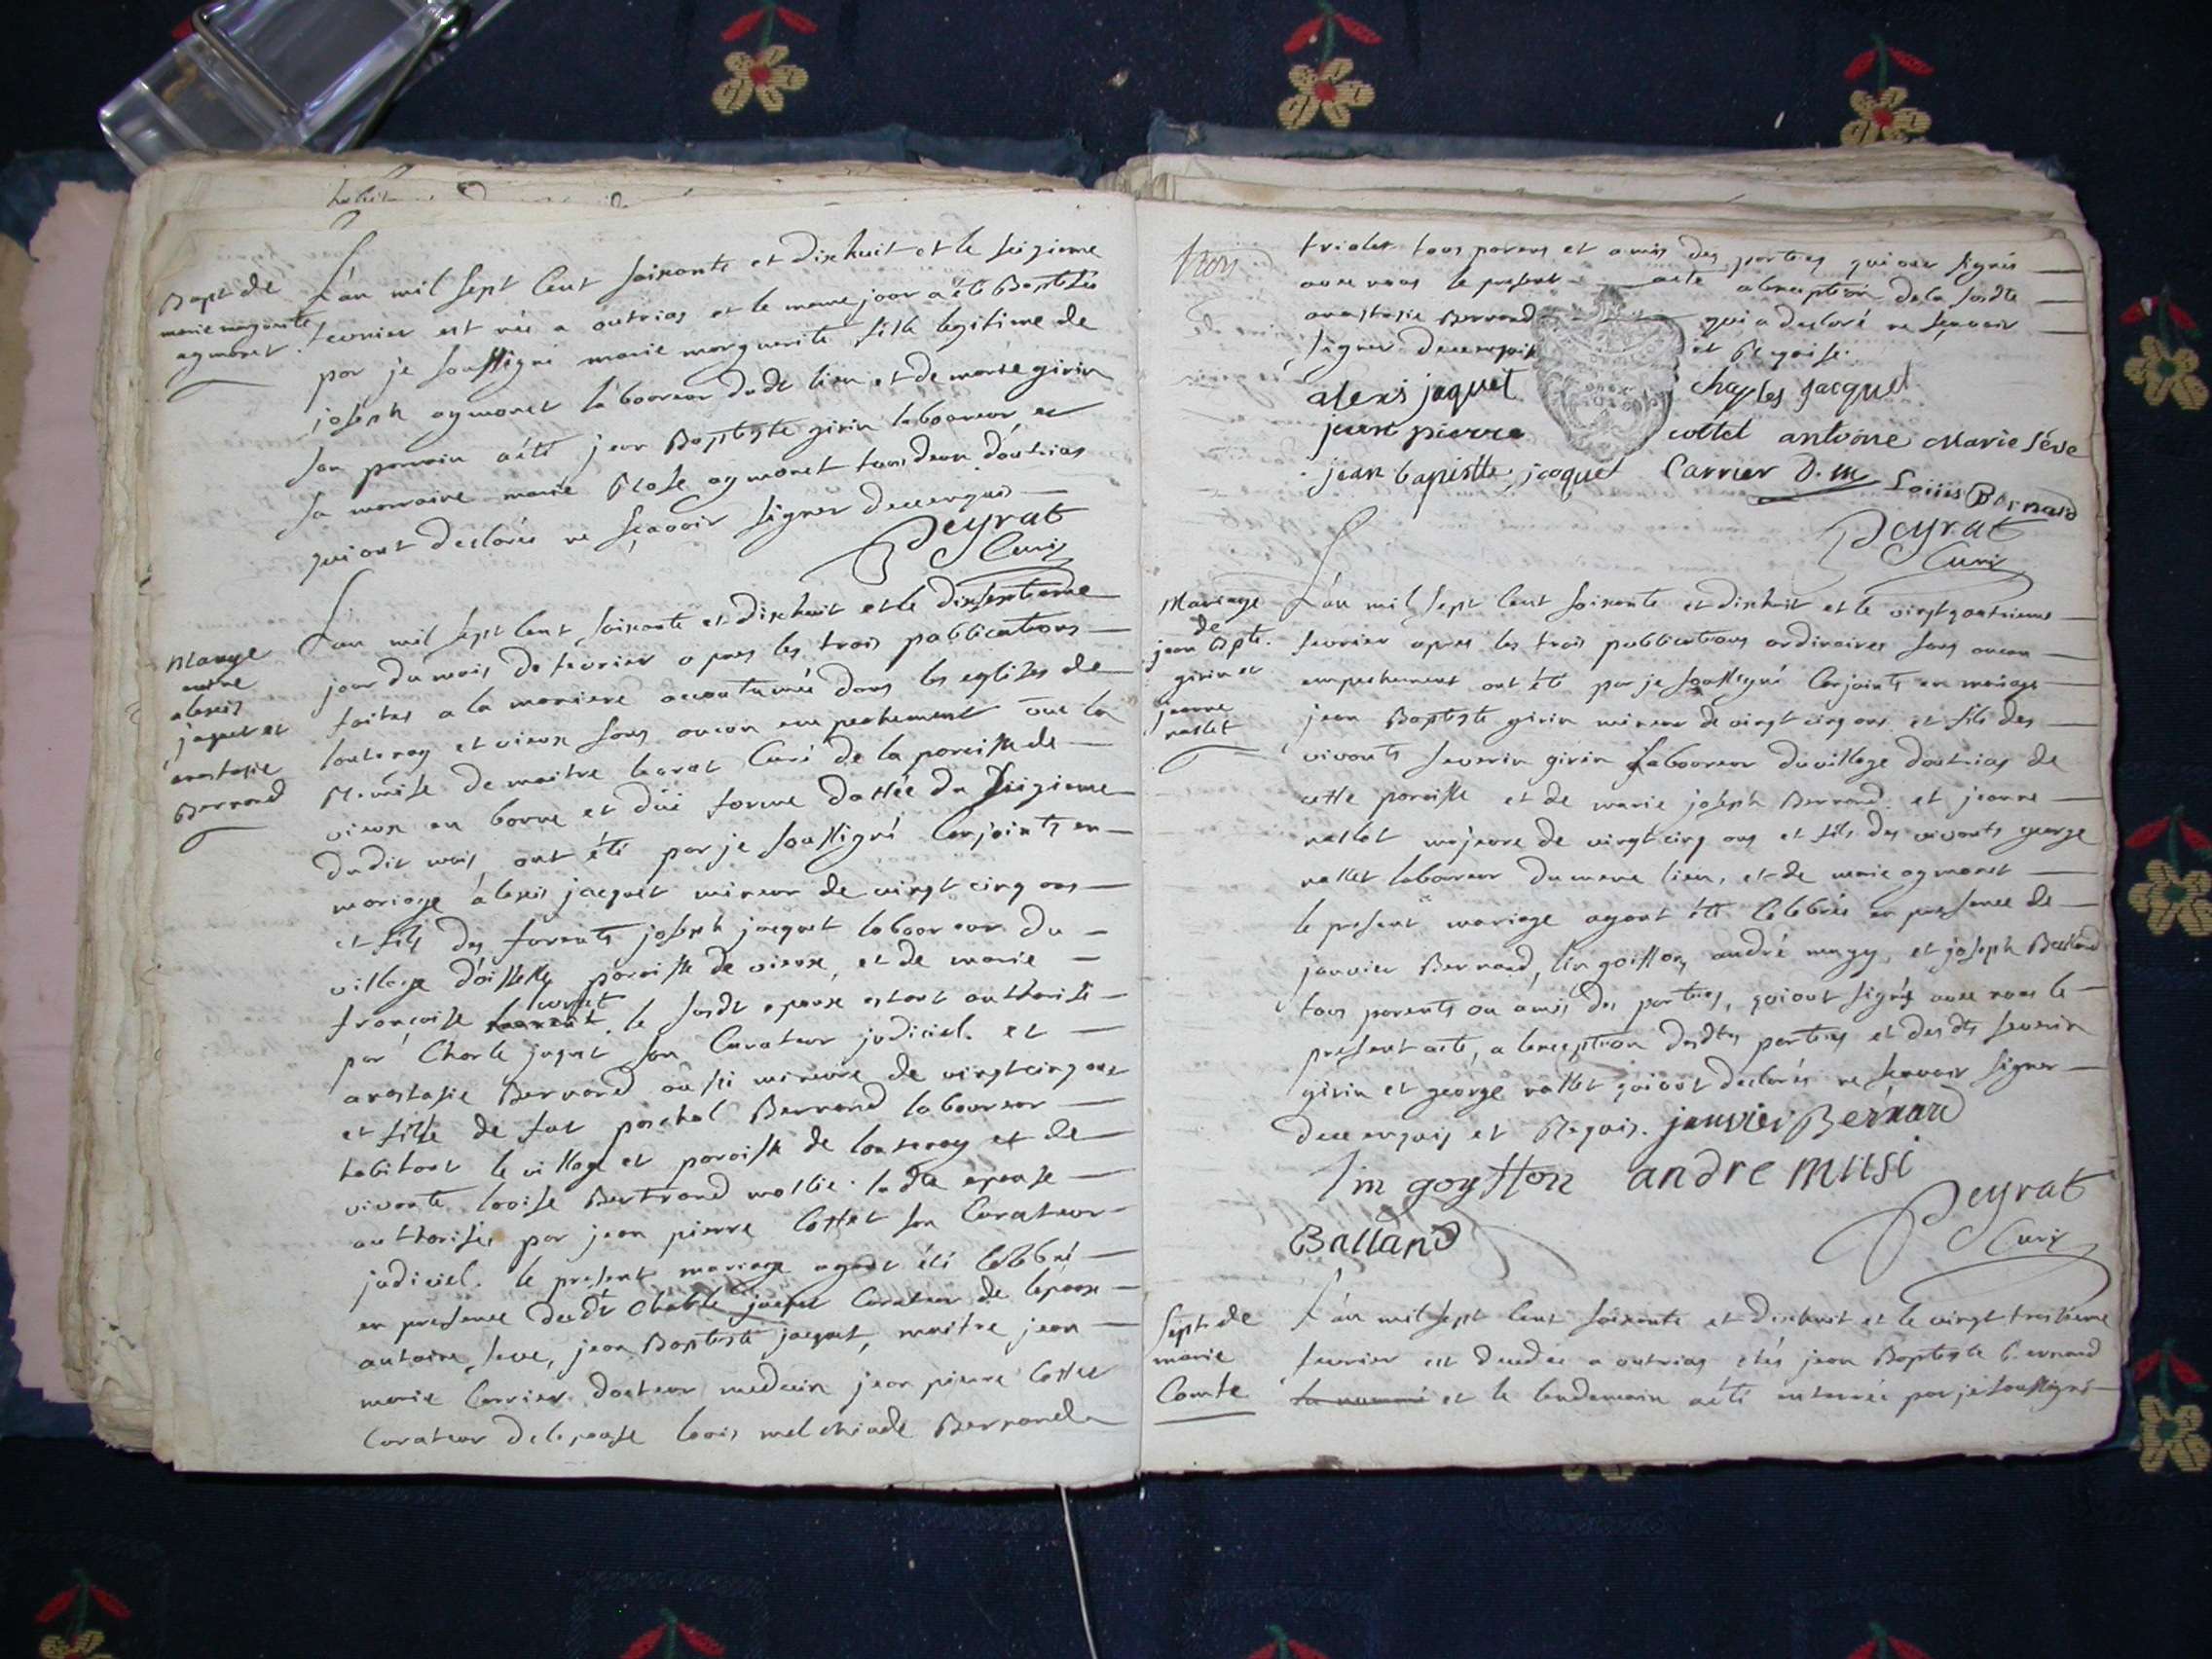 Bapt de
marie marguerite
aymonet
L'an mil sept cent soixante et dixhuit et le seizieme
fevrier est née a outrias et le meme jour a été Baptisée
par je soussigné marie marguerite fille legitime de
joseph aymonet laboureur dudt lieu et de marie girin
son parrain a été jean Baptiste girin laboureur et
sa marraine marie Rose aymonet tous deux d'outrias
qui ont declarés ne sçavoir signer de ce enquis
Peyrat
Curé
Mariage
entre
alexis
jaquet et
anastasie
Bernand
L'an mil sept cent soixante et dixhuit et le dixseptieme
jour du mois de fevrier apres les trois publications
faites a la maniere accoutumée dans les eglises de
lantenay et vieux sans aucun empechement vue la
Remise de maitre Curé de la paroisse de
vieux en bonne et düe forme dattée du seizieme
dudit mois, ont été par je soussigné Conjoints en
mariage alexis jacquet mineur de vingt cinq ans
et fils des joseph jacquet laboureur du
village paroisse de vieux, et de marie
francoise le susdt epoux estant authorisé
par Charle jaquet son Curateur judiciel. et
anastasie Bernand aussi mineure de vingt cinq ans
et fille de fut paschal Bernand laboureur
habitant le village et paroisse de lantenay et de
vivante louise Bertrand la dte epouse
authorisée par jean pierre Cottet son Curateur
judiciel. le present mariage ayant été celebré
en presence dudt Charle jaquet Curateur de lepoux
antoine seve, jean Baptiste jacquet, maitre jean
marie Carrier docteur medecin jean pierre Cottet
Curateur de lepouse louis melchiade Bernand
trois
triolet tous parens et amis des parties qui ont signés
avec nous le present acte a lexception de la susdte
anastasie Bernand qui a declaré ne sçavoir
signer de ce enquise et Requise.
alexis jaquet charles jacquet
jean pierre cottet antoine Marie séve
jean baptiste jacquet Carrier D. m Loüis Bernard
Peyrat
Curé
Mariage
de
jean Bpte.
girin et
jeanne
nallet
L'an mil sept cent soixante et dixhuit et le vingtquatrieme
fevrier apres les trois publications ordinaires sans aucun
empechement ont été par je soussigné Conjoints en mariage
jean Baptiste girin mineur de vingt cinq ans et fils des
vivants severin girin laboureur du village doutrias de
cette paroisse et de marie joseph Bernand. et jeanne
nallet majeure de vingt cinq ans et fille des vivants george
nallet laboureur du meme lieu, et de marie aymonet
le present mariage ayant été Celebrée en presence de
janvier Bernand, lin goitton, andré, et joseph Balland
tous parents ou amis des parties, qui ont signés avec nous le
present acte, a lexception desdtes parties et des dts severin
girin et george nallet qui ont declarés ne sçavoir signer
de ce enquis et Requis. janvier Bernard
lin goytton andre musi
Balland
Peyrat
Curé
Sept. de
marie
Comte
L'an mil sept cent soixante et dixhuit et le vingt troisieme
fevrier est decedée a outrias chés jean Baptiste Bernand
la nommé et le lendemain a été enterrée par je soussigné